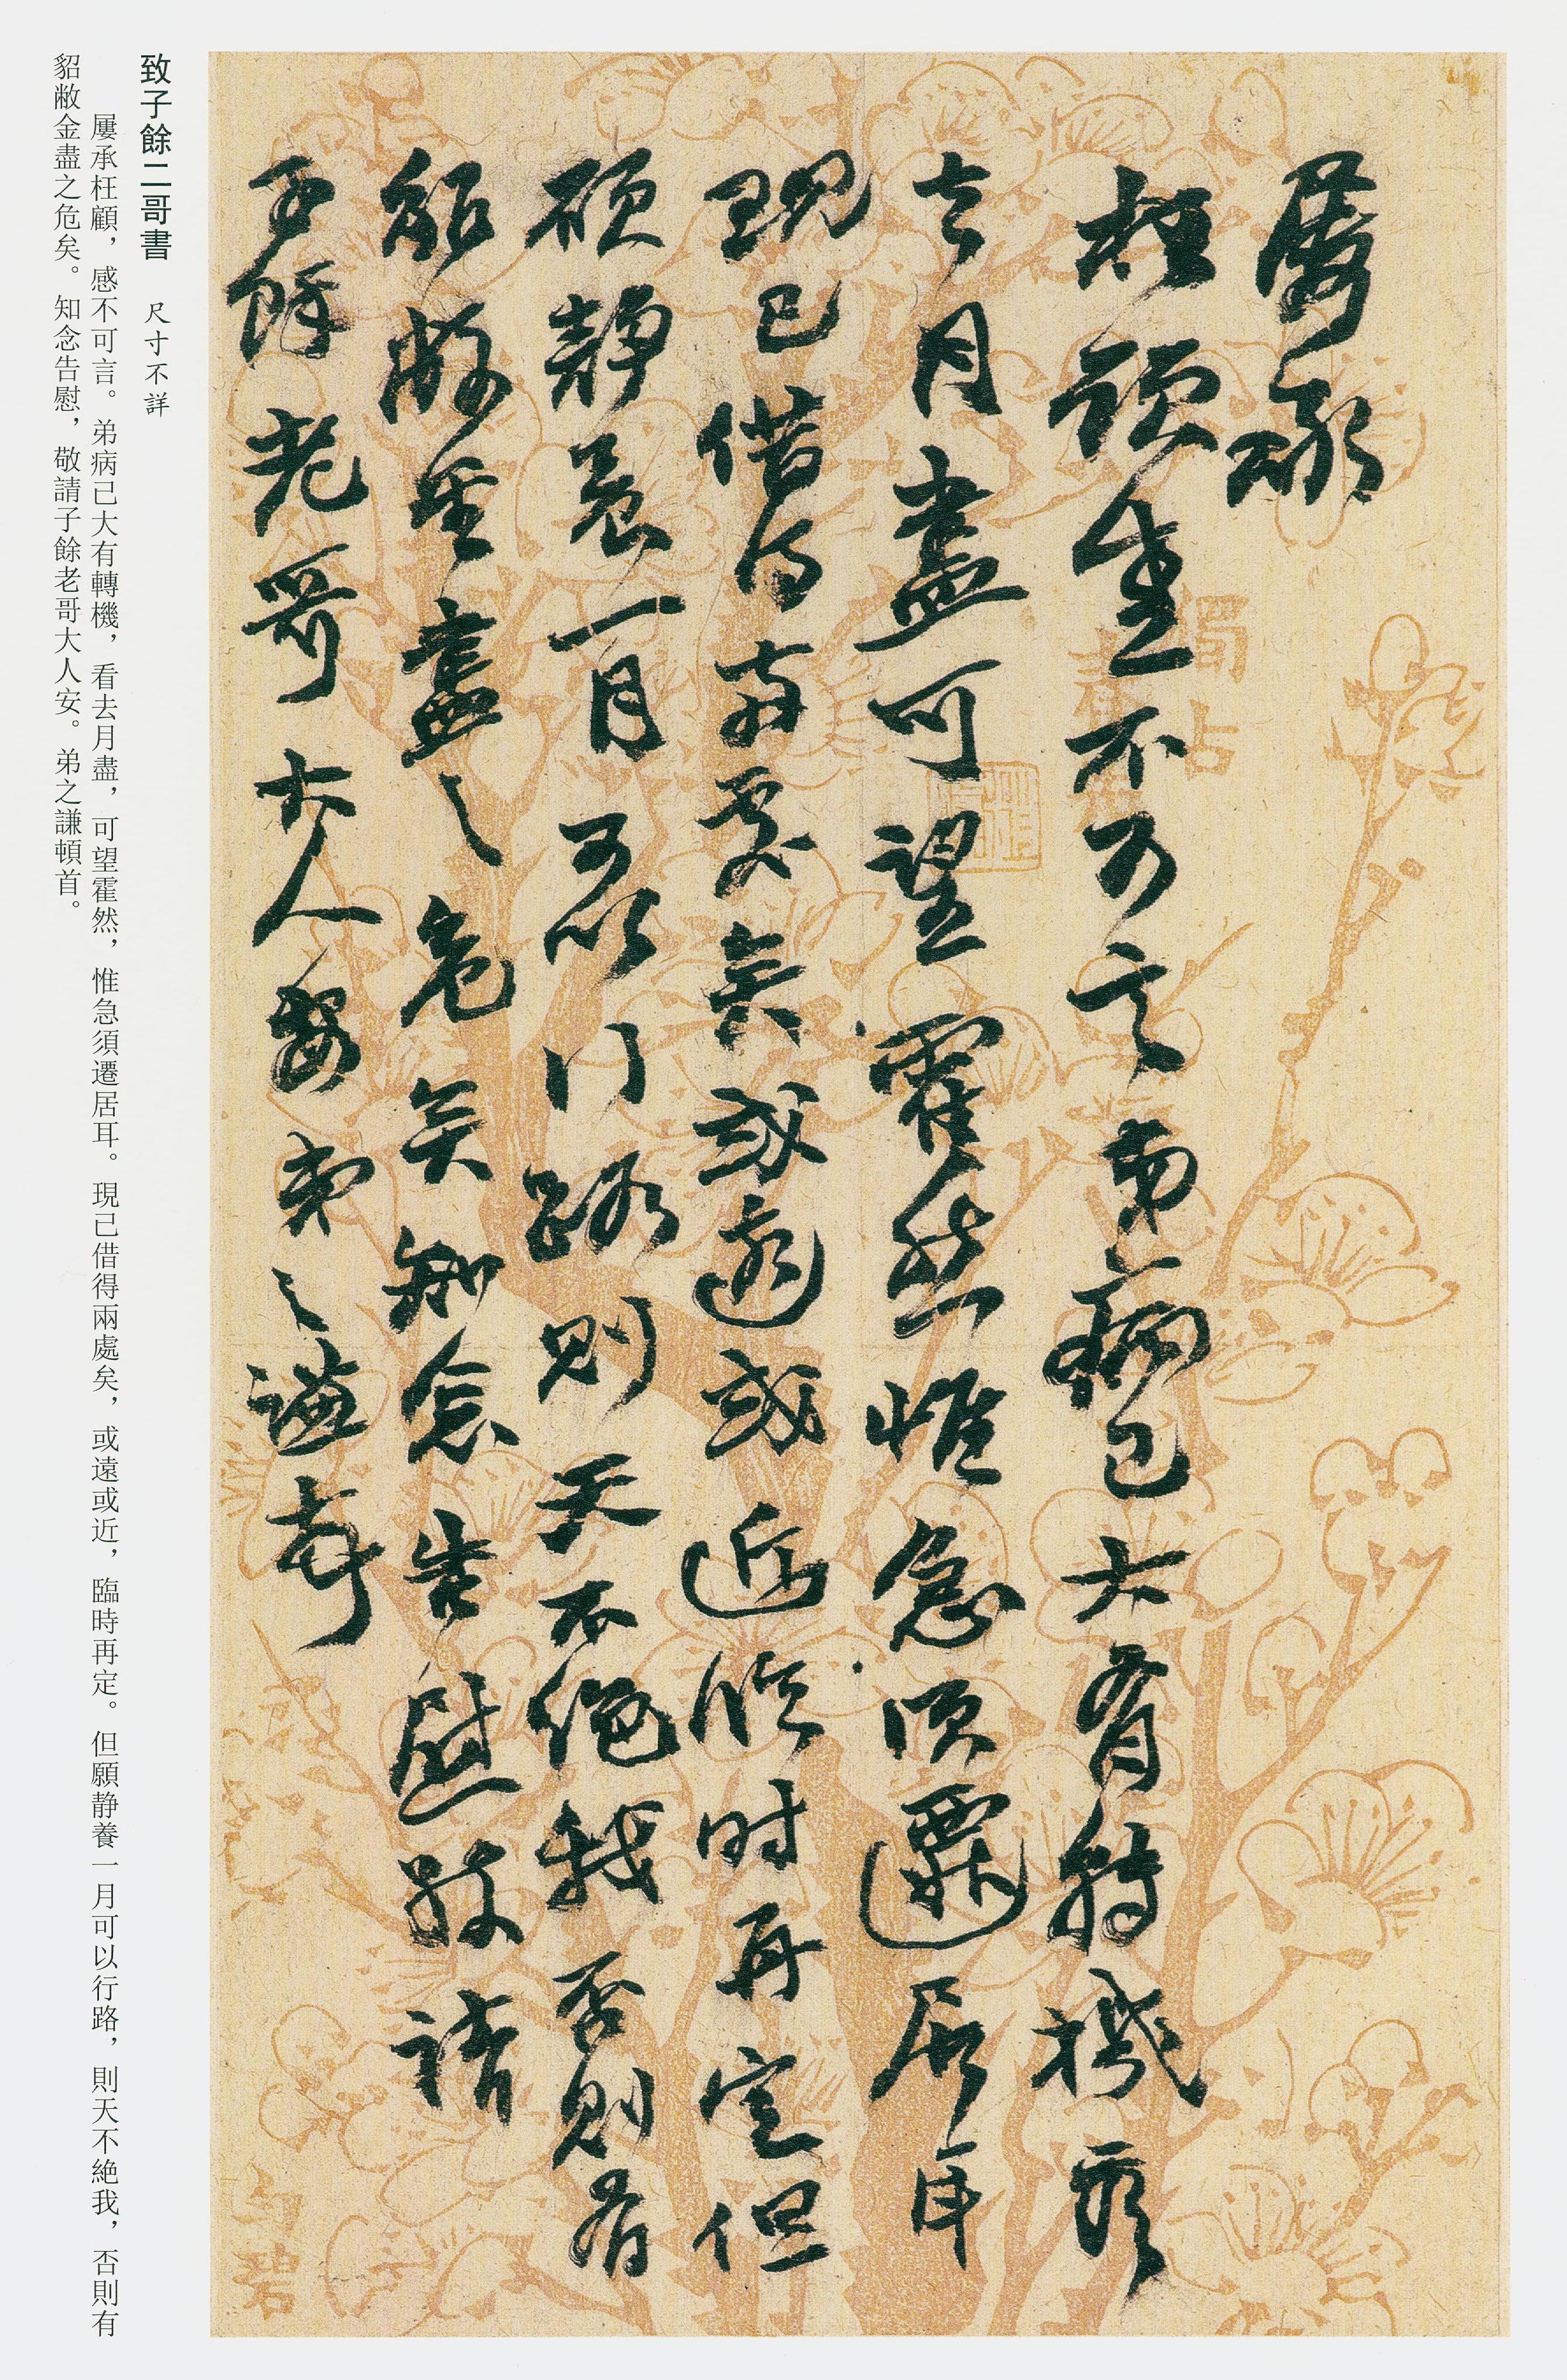 屢承
枉顧感不可言弟病已大有轉機
去月盡可望霍然惟急須遷居耳
現已借得兩處矣或遠或近臨時再定但
願靜養一月可以行路則天不絕我否則有
貂敝金盡之危矣知念告慰敬請
子餘老哥大人安弟之謙頓首
致子餘二哥書 尺寸不詳
屢承枉顧，感不可言。弟病已大有轉機，看去月盡，可望霍然，惟急須遷居耳。現已借得兩處矣，或遠或近，臨時再定。但願静養一月可以行路，則天不絕我，否則有
貂敝金盡之危矣。知念告慰，敬請子餘老哥大人安。弟之謙頓首。